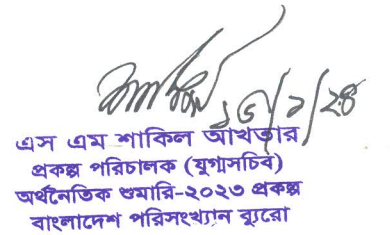 ১৬/১/২৪
এস এম শাকিল আখতার
প্রকল্প পরিচালক (যুগ্মসচিব)
অর্থনৈতিক শুমারি-২০২৩ প্রকল্প
বাংলাদেশ পরিসংখ্যান ব্যুরো